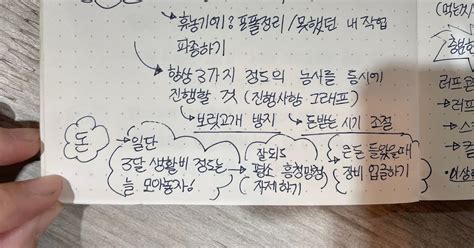 → 휴농기에? 포폴정리 / 못했던 내 작업
파종하기
→ 항상 3가지 정도의 농사를 동시에
진행할 것 (진행사항 그래프)
↳ 보릿고개 방지 ↳ 돈받는 시기 조절
돈 → 일단
3달 생활비 정도는
늘 모아놓자!
→ 잘되도
평소 흥청망청
자제하기
→ 큰돈 들왔을때
장비 업글하기
(먹는거
러프은
→ 러프
→ 스
→ 컬